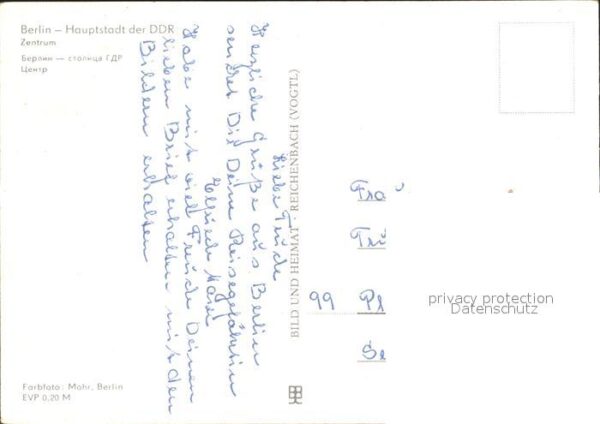 Berlin – Hauptstadt der DDR
Zentrum
Берлин — столица ГДР
Центр
Liebe Trude
Herzliche Grüße aus Berlin
sendet Dir Deine Reisegefährtin
Elfriede
Habe mit viel Freude Deinen
lieben Brief erhalten mit den
Bildern erhalten
BILD UND HEIMAT REICHENBACH (VOGTL)
Fra
Trü
99 Pl
Se
privacy protection
Datenschutz
Farbfoto: Mohr, Berlin
EVP 0,20 M